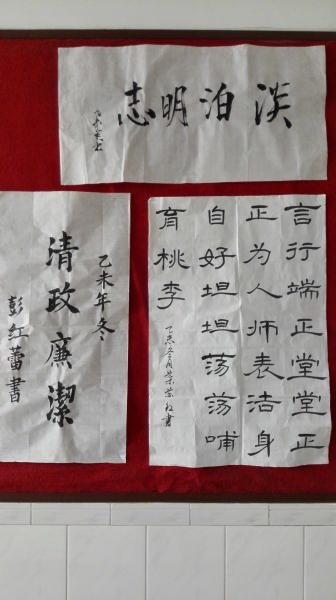 淡泊明志
言行端正堂堂正
正为人师表洁身
自好坦坦荡荡哺
育桃李
乙未年冬
清政廉潔
彭红蕾書